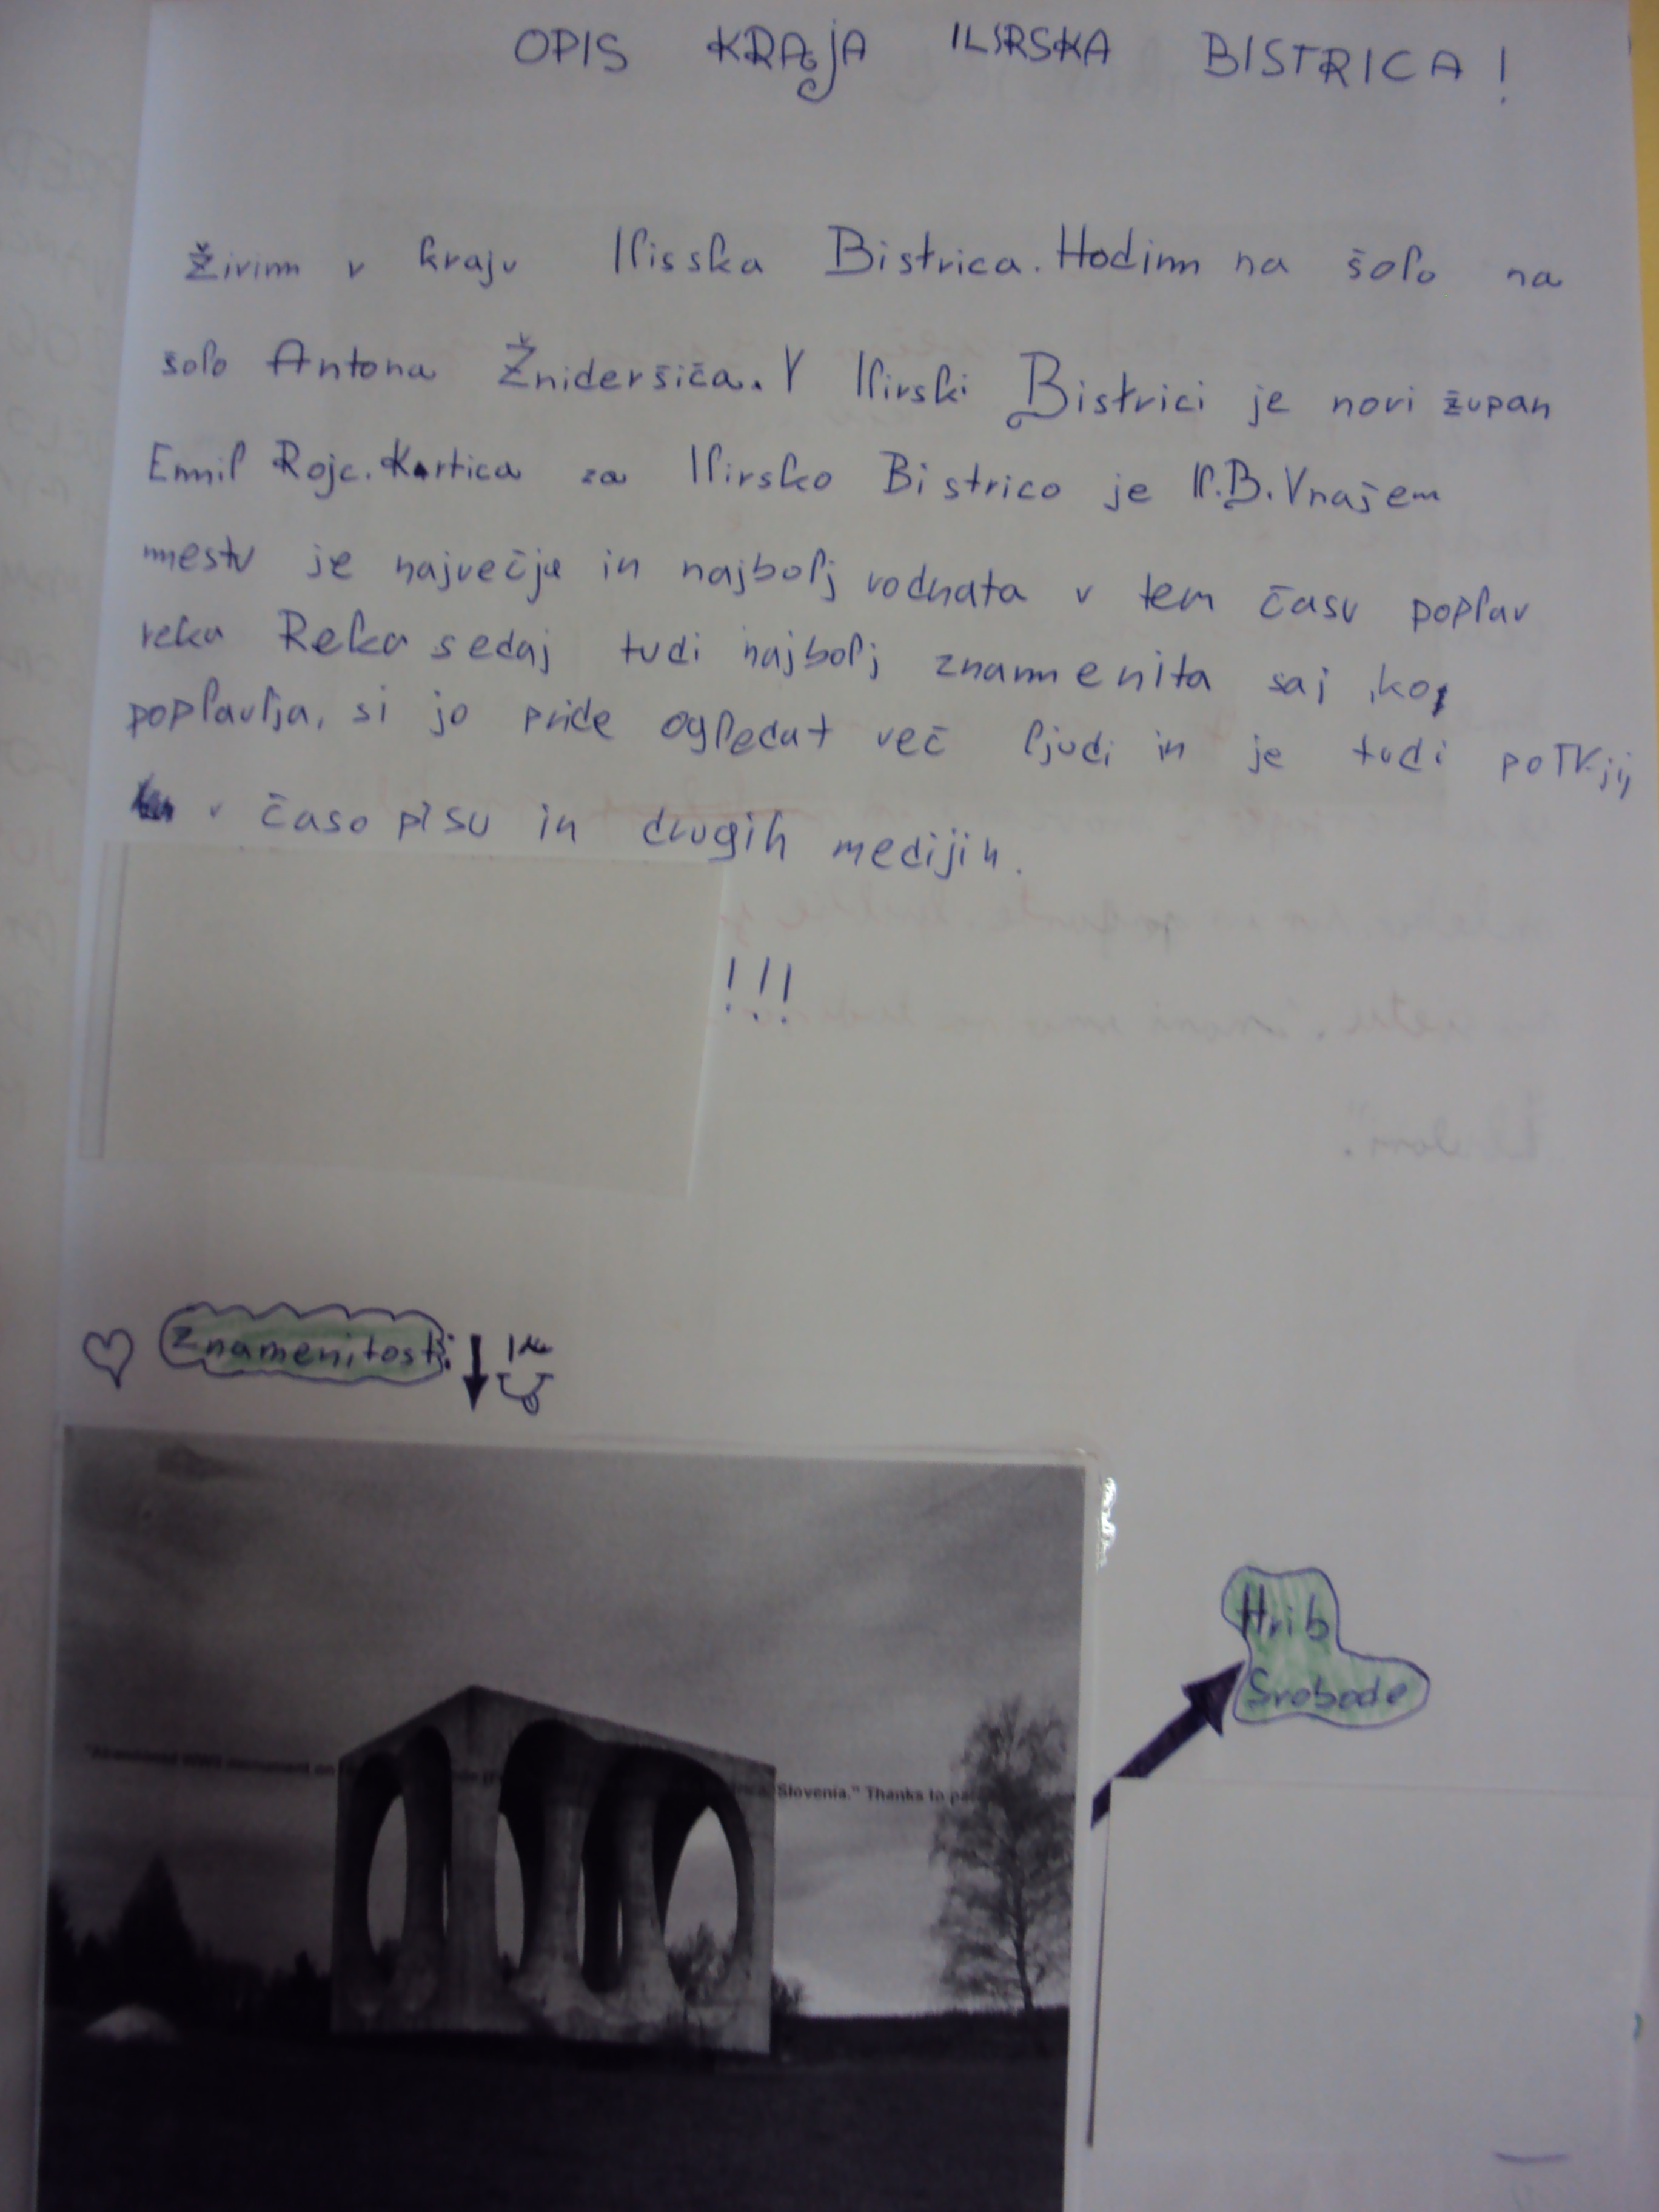 OPIS KRAJA ILIRSKA BISTRICA!
Živim v kraju Ilisska Bistrica. Hodim na šolo na
šolo Antona Žnideršiča. V Ilirski Bistrici je novi župan
Emil Rojc. Kartica za Ilirsko Bistrico je Il.B. V našem
mestu je največja in najbolj vodnata v tem času poplav
reka Reka sedaj tudi najbolj znamenita saj ko
poplavlja, si jo pride ogledat več ljudi in je tudi po TV-jij,
v časopisu in drugih medijih.
!!!
Znamenitosti:
Hrib
Svobode
"Abandoned WWII monument on Slovenia." Thanks to